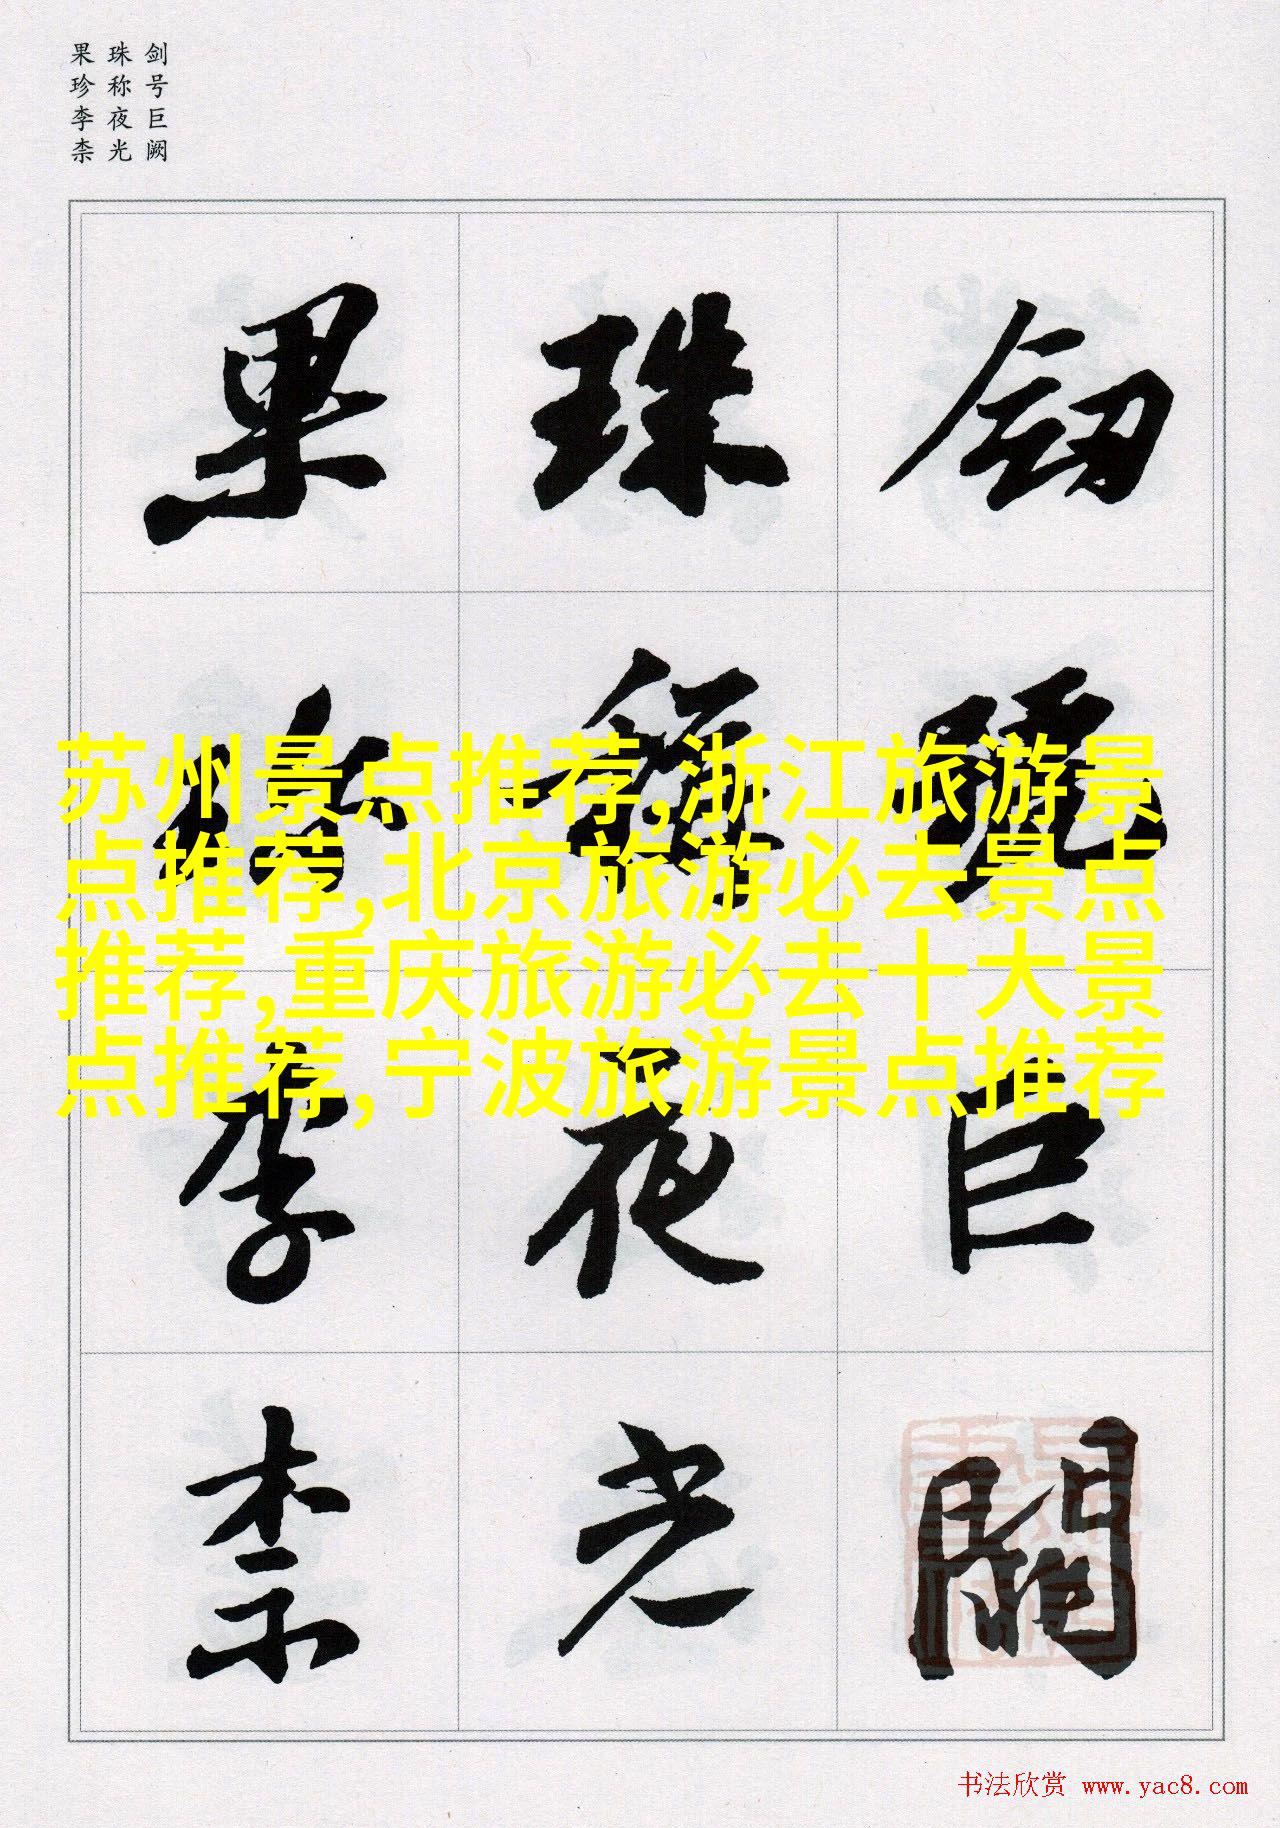 剑号巨阙
珠称夜光
果珍李柰
劍號巨闕
珠稱夜光
果珍李柰
苏州景点推荐,浙江旅游景
点推荐,北京旅游必去景点
推荐,重庆旅游必去十大景
点推荐,宁波旅游景点推荐
书法欣赏 www.yac8.com